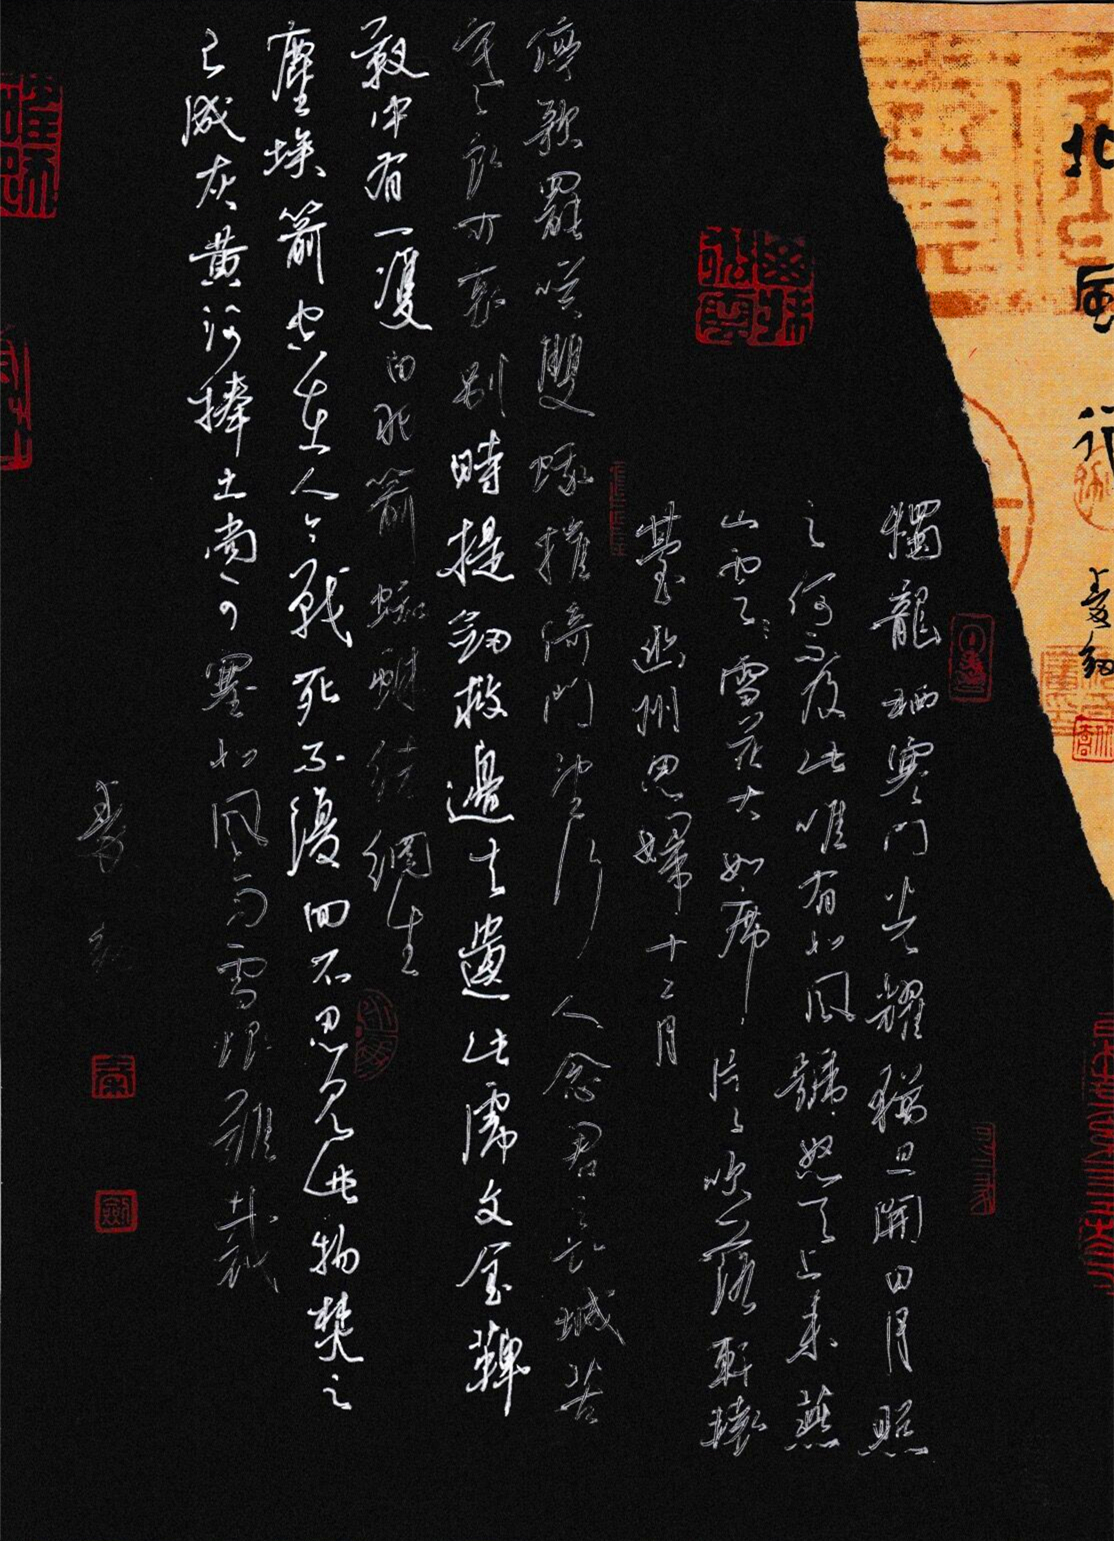 北風行
燭龍栖寒門光耀猶旦開日月照
之何不及此唯有北風號怒天上來燕
山雪花大如席片片吹落軒轅
臺幽州思婦十二月
停歌罷笑雙蛾摧倚門望行人念君長城苦
寒良可哀別時提劍救邊去遺此虎文金鞞
靫中有一雙白羽箭蜘蛛結網生
塵埃箭空在人今戰死不復回不忍見此物焚之
已成灰黃河捧土尚可塞北風雨雪恨難裁